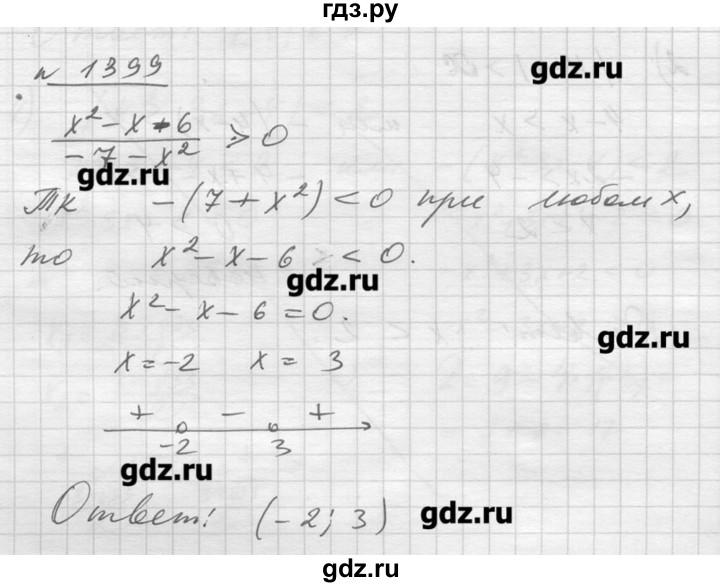 гдз.ру
n 1399
gdz.ru
x² - x - 6
——— ⩾ 0
- 7 - x²
gdz.ru
Тк -(7 + x²) < 0 при любом x,
то x² - x - 6 < 0.
gdz.ru
x² - x - 6 = 0.
gdz.ru
x = -2 x = 3
+ - +
-2 3
gdz.ru
Ответ: (-2; 3)
gdz.ru
gdz.ru